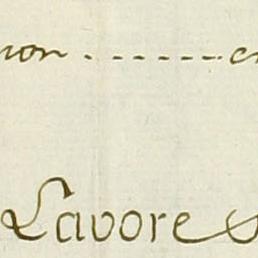 non ....... e
Lavore